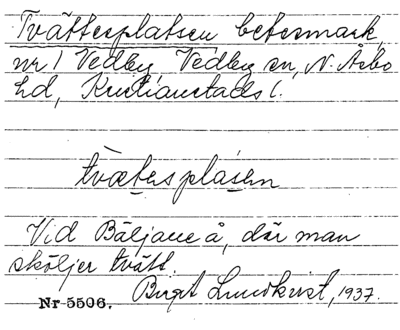 Tvättesplatsen betesmark
nr 1 Vedby, Vedby sn, N. Åsbo
hd, Kristianstads l.
tvætesplásen
Vid Bäljane å, där man
sköljer tvätt.
Birgit Lundkvist, 1937.
Nr 5506.